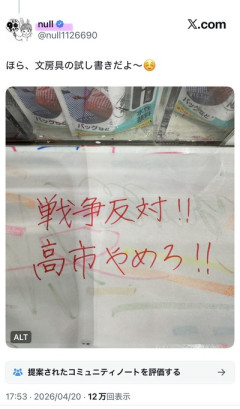 null
@null1126690
X.com
ほら、文房具の試し書きだよ〜☺️
バッグなど
バッグなど
戦争反対!!
高市やめろ!!
ALT
提案されたコミュニティノートを評価する
17:53 · 2026/04/20 · 12万回表示